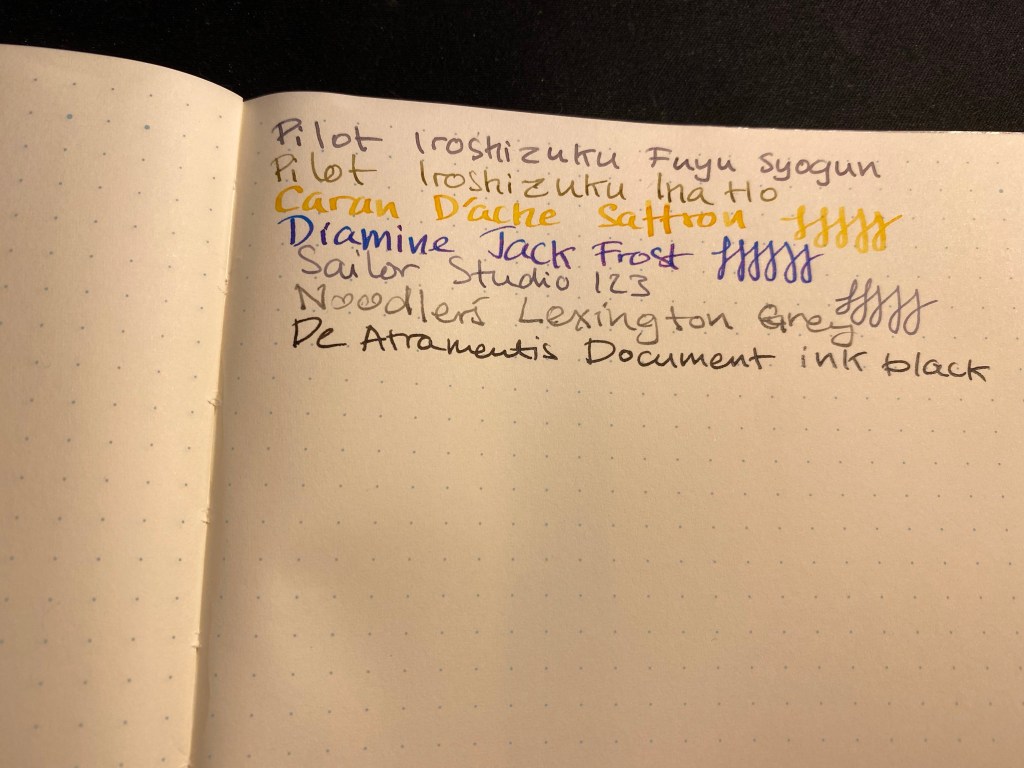 Pilot Iroshizuku Fuyu syogun
Pilot Iroshizuku Ina Ho
Caran D'ache Saffron
Diamine Jack Frost
Sailor Studio 123
Noodler's Lexington Grey
De Atramentis Document ink black